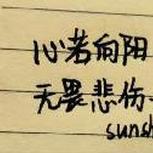 心若向阳
无畏悲伤
sunsh